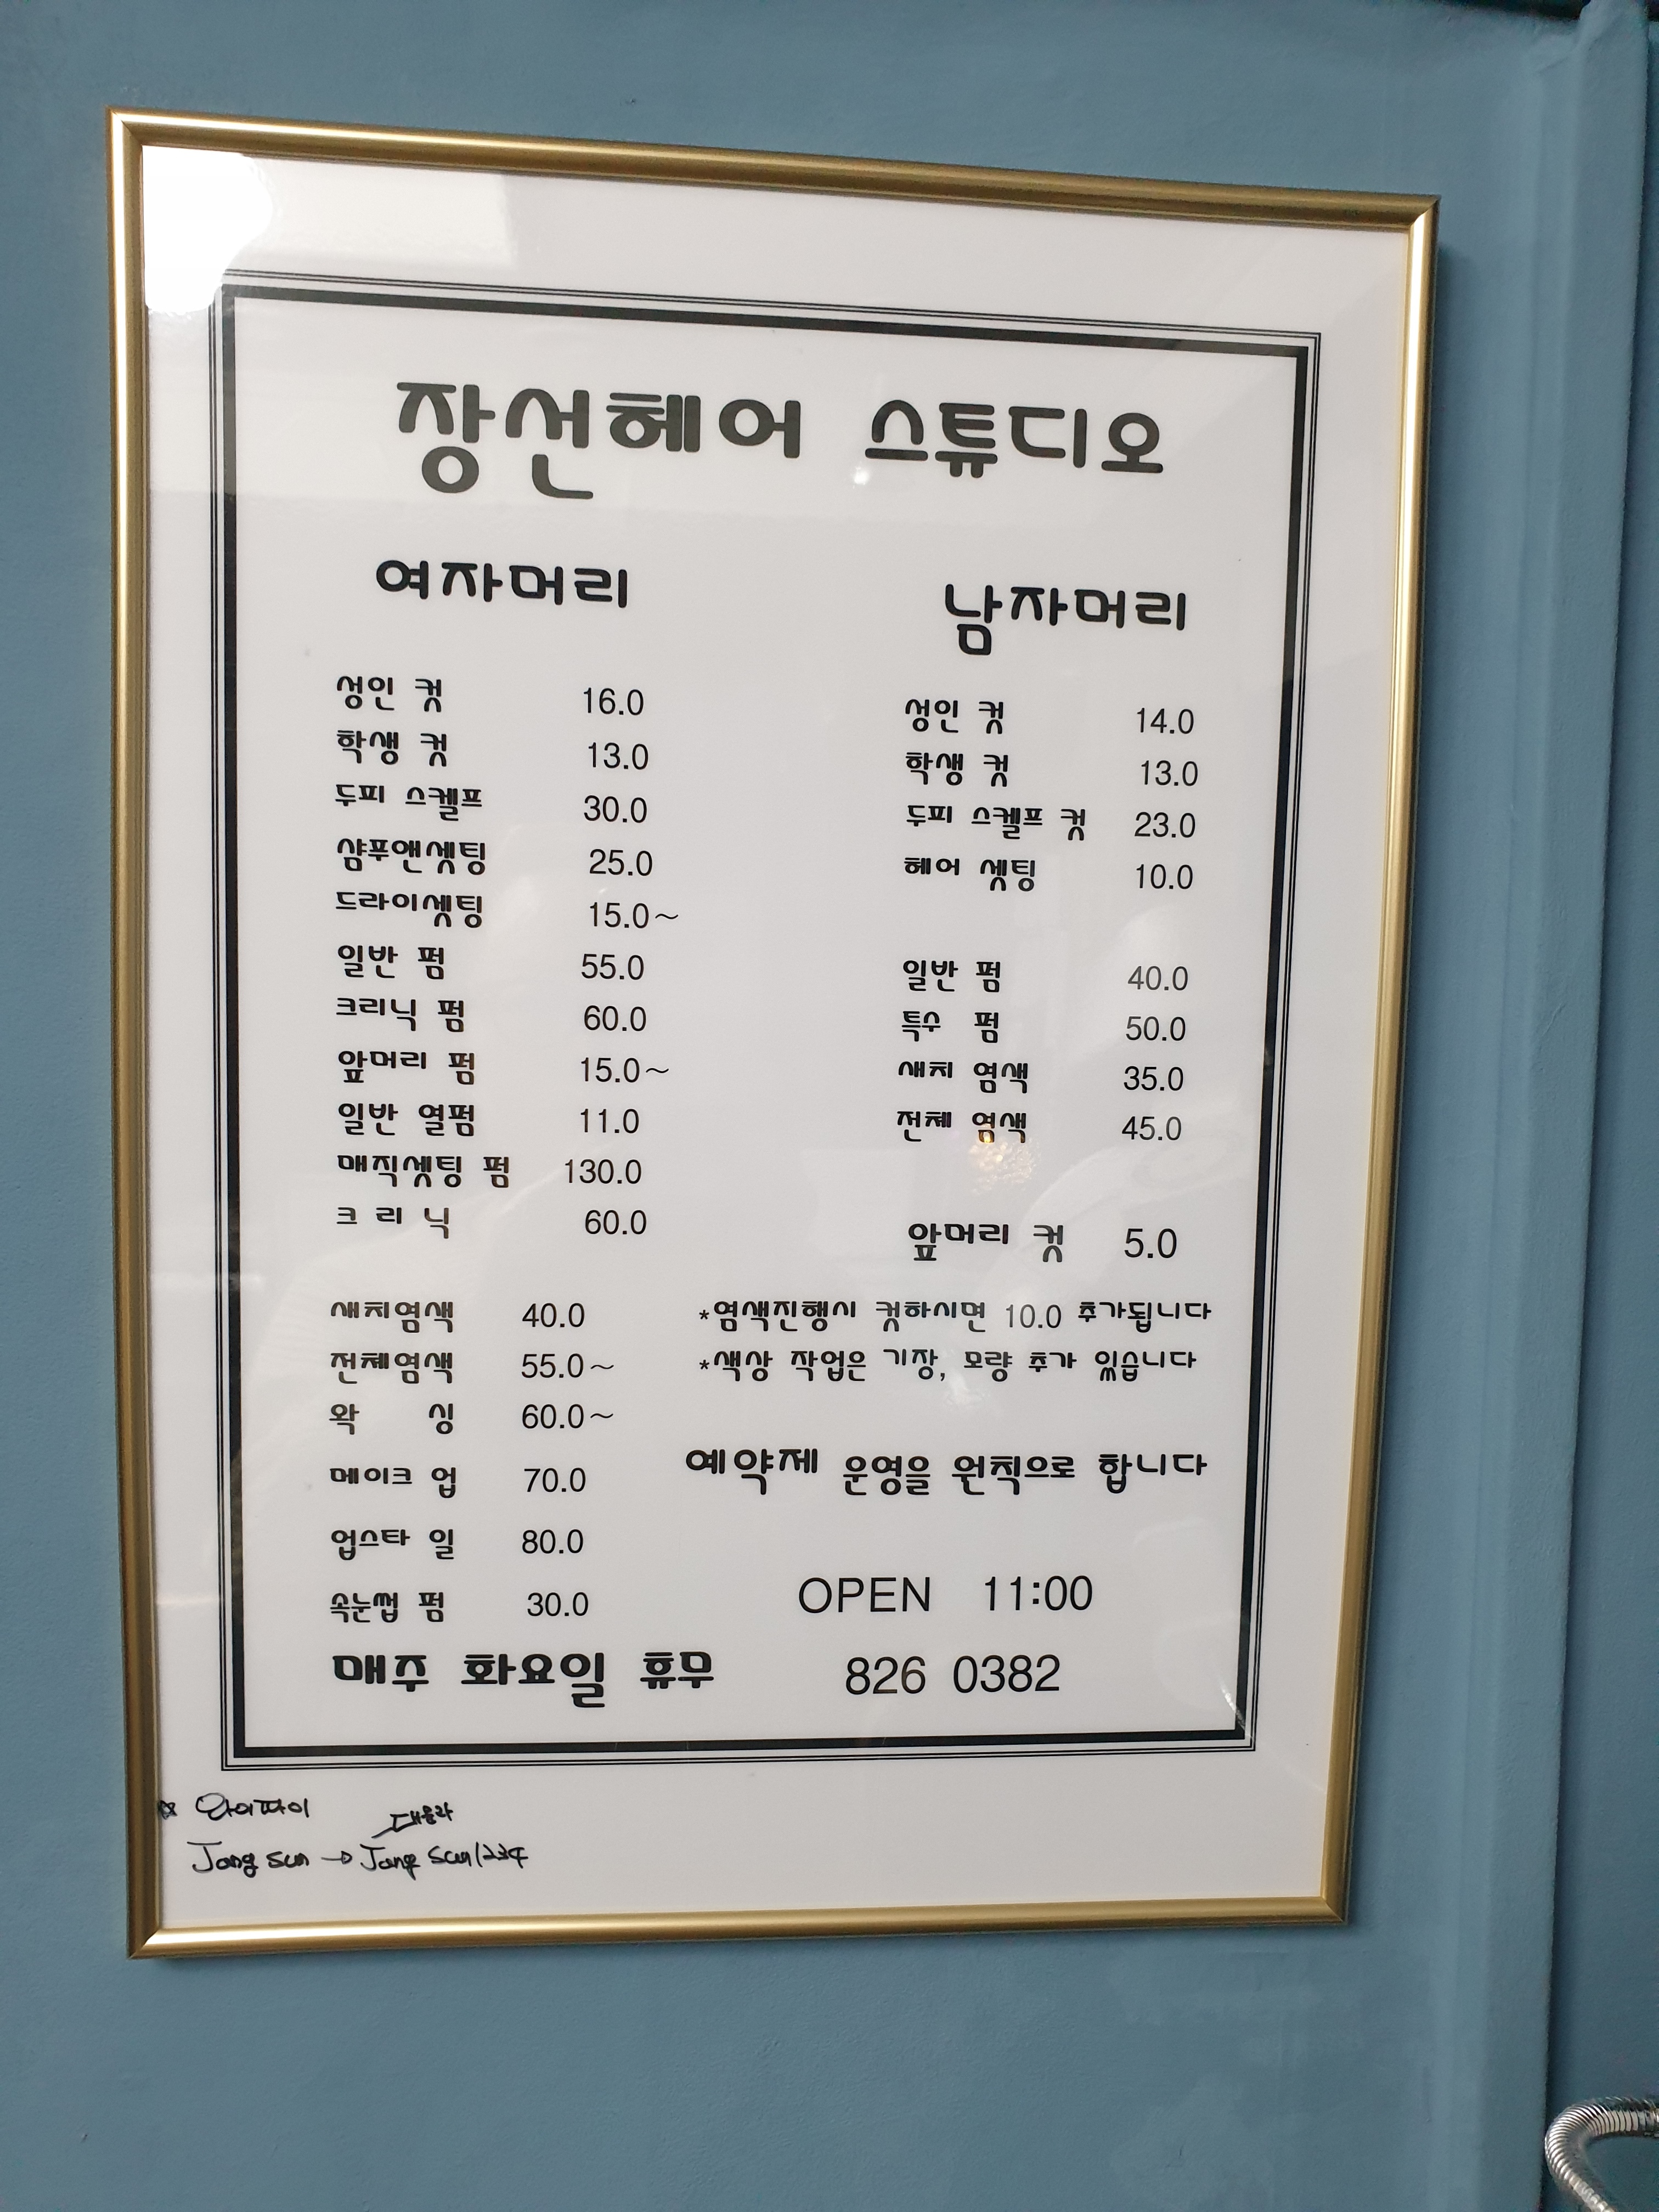 장선헤어 스튜디오
여자머리
성인 컷 16.0
학생 컷 13.0
두피 스켈프 30.0
샴푸앤셋팅 25.0
드라이셋팅 15.0~
일반 펌 55.0
크리닉 펌 60.0
앞머리 펌 15.0~
일반 열펌 11.0
매직셋팅 펌 130.0
크 리 닉 60.0
새치염색 40.0
전체염색 55.0~
왁 싱 60.0~
메이크 업 70.0
업스타 일 80.0
속눈썹 펌 30.0
매주 화요일 휴무
남자머리
성인 컷 14.0
학생 컷 13.0
두피 스켈프 컷 23.0
헤어 셋팅 10.0
일반 펌 40.0
특수 펌 50.0
새치 염색 35.0
전체 염색 45.0
앞머리 컷 5.0
*염색진행시 컷하시면 10.0 추가됩니다
*색상 작업은 기장, 모량 추가 있습니다
예약제 운영을 원칙으로 합니다
OPEN 11:00
826 0382
와이파이
대문자
Jang sun → Jang sun1234